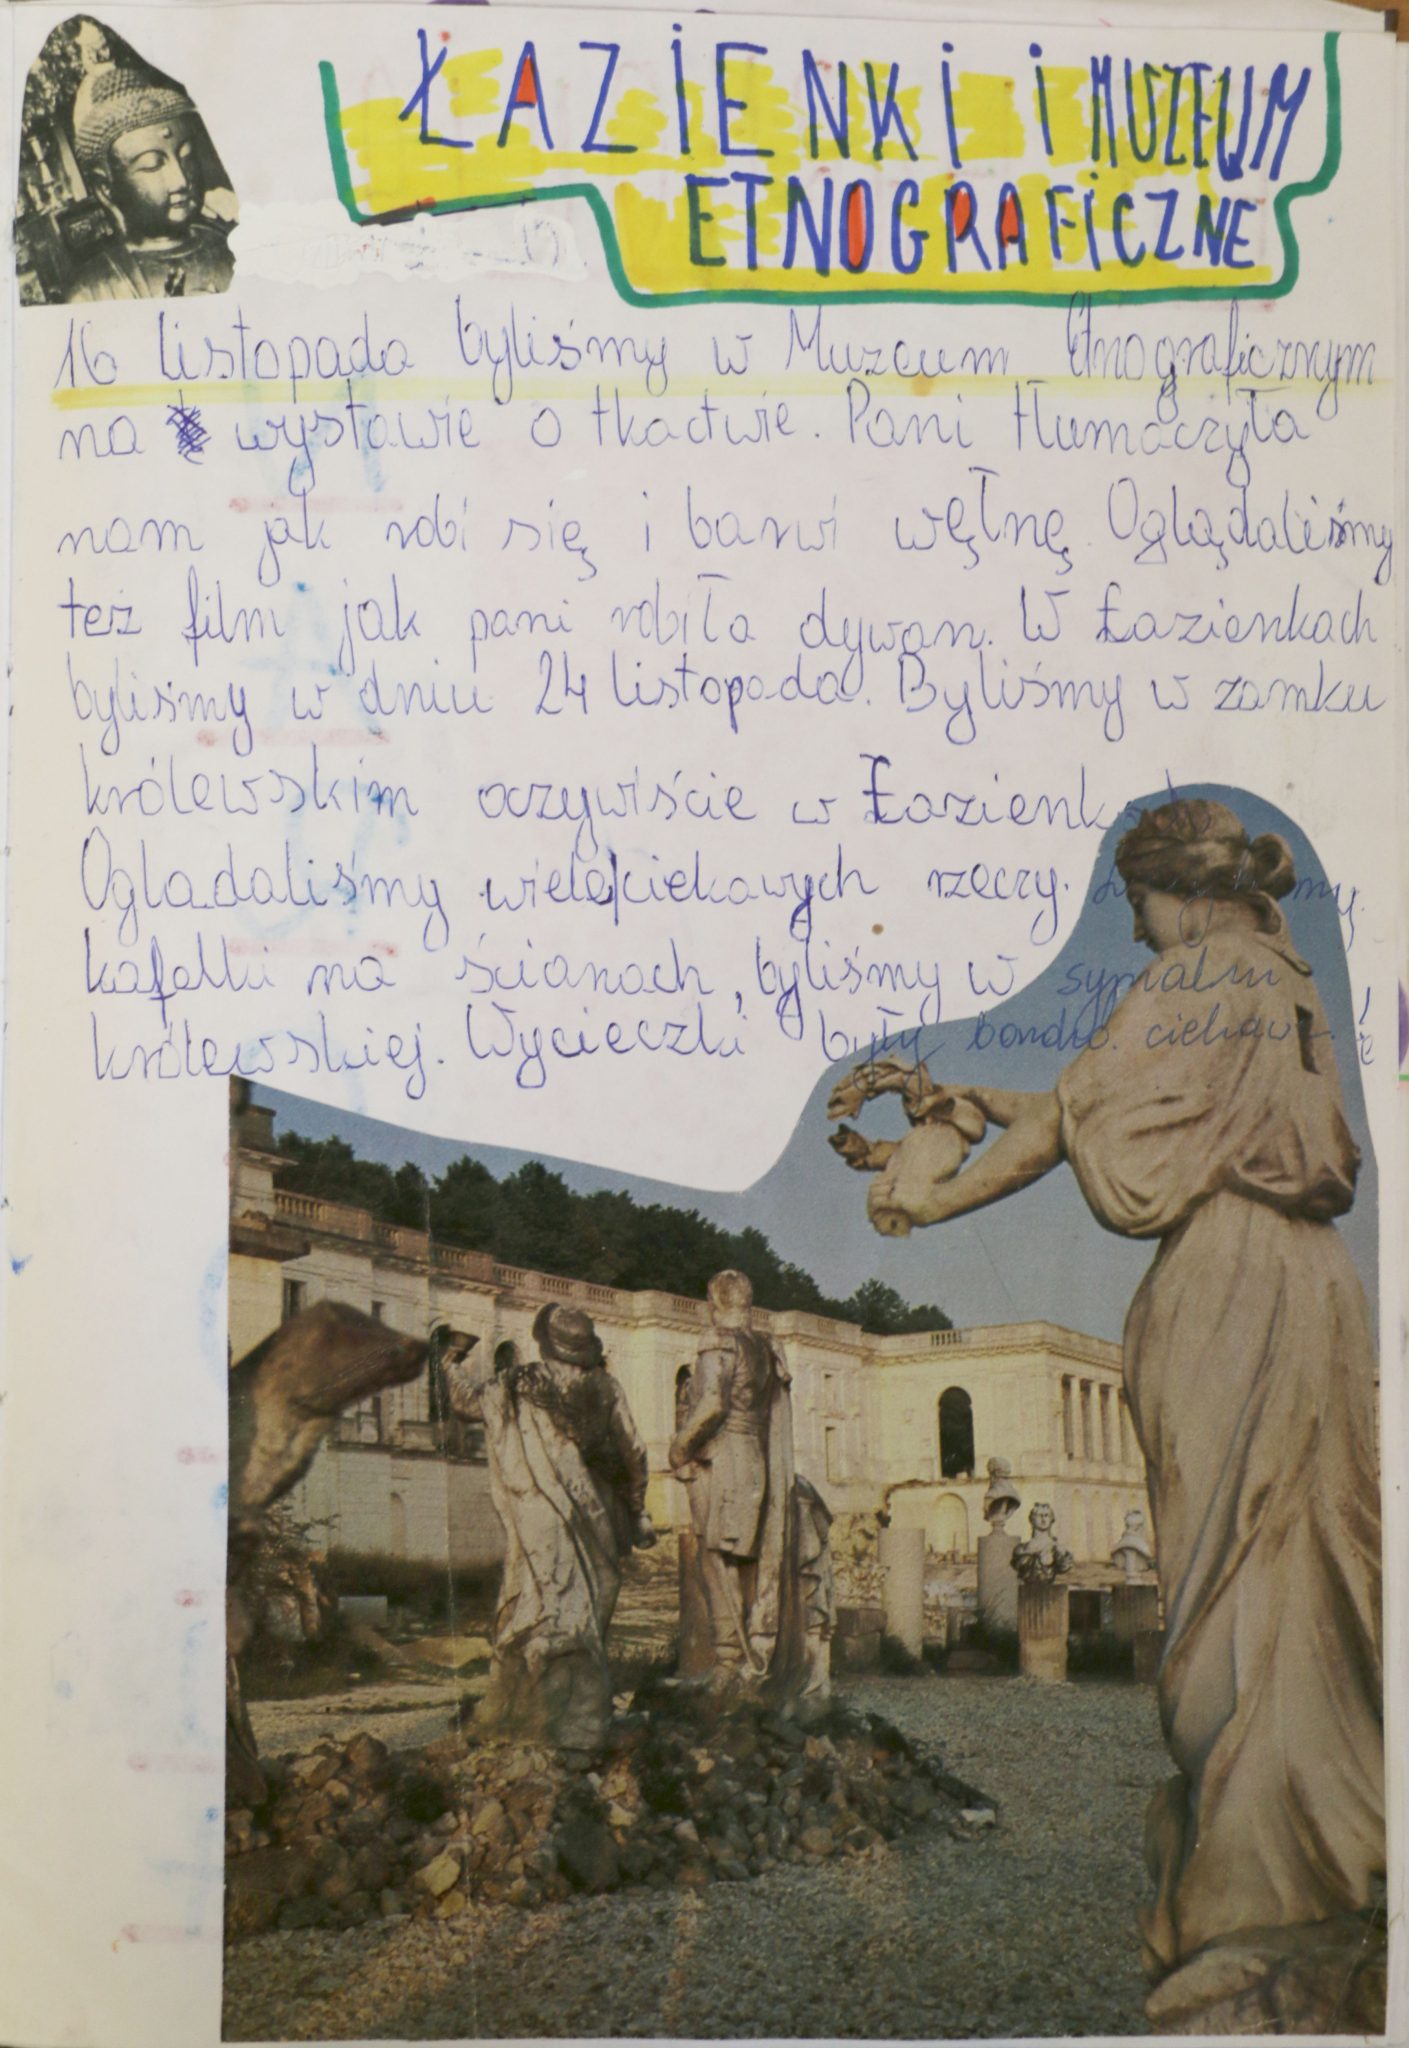 ŁAZIENKI I MUZEUM
ETNOGRAFICZNE
16 listopada byliśmy w Muzeum Etnograficznym
na wystawie o tkactwie. Pani tłumaczyła
nam jak robi się i barwi węłnę. Oglądaliśmy
też film jak pani robiła dywan. W Łazienkach
byliśmy w dniu 24 listopada. Byliśmy w zamku
królewskim oczywiście w Łazienkach
Oglądaliśmy wiele ciekawych rzeczy.
kafelki na ścianach, byliśmy w sypialni
królewskiej. Wycieczki były bardzo ciekawe!